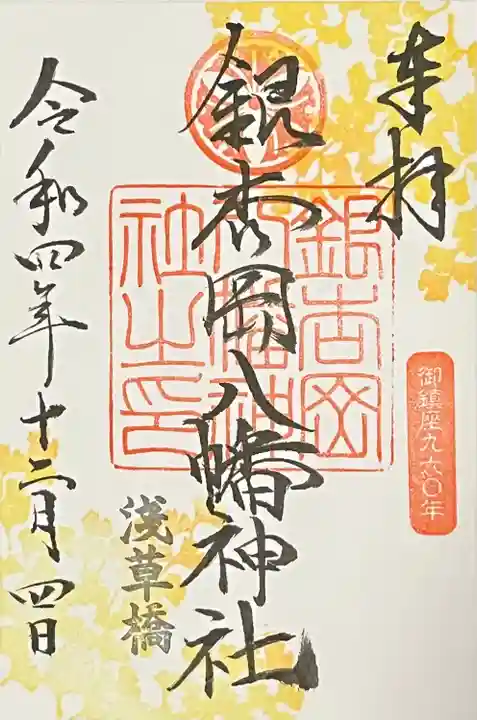 奉拝
御鎮座九六〇年
銀杏岡八幡神社
銀杏岡八幡神社之印
浅草橋
令和四年十二月四日